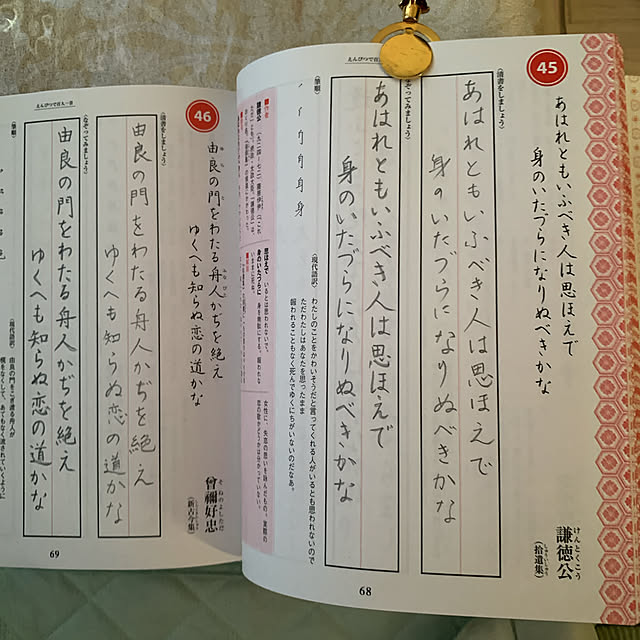 45
あはれともいふべき人は思ほえで
身のいたづらになりぬべきかな
けんとくこう
謙徳公
(拾遺集)
(清書をしましょう)
あはれともいふべき人は思ほえで
身のいたづらになりぬべきかな
あはれともいふべき人は思ほえで
身のいたづらになりぬべきかな
(筆順)
(現代語訳)
わたしのことをかわいそうだと言ってくれる人がいるとも思われないので
ただわたしはあなたを思ったまま
報われることもなく死んでゆくにちがいないのだなあ。
■作者
謙徳公
思ほえで
身のいたづらに
68
えんぴつで百人一首
46
由良の門をわたる舟人かぢを絶え
ゆくへも知らぬ恋の道かな
曾禰好忠
(新古今集)
(清書をしましょう)
由良の門をわたる舟人かぢを絶え
ゆくへも知らぬ恋の道かな
(なぞってみましょう)
由良の門をわたる舟人かぢを絶え
ゆくへも知らぬ恋の道かな
(筆順)
(現代語訳)
由良の門をこぎ渡る舟人が
69